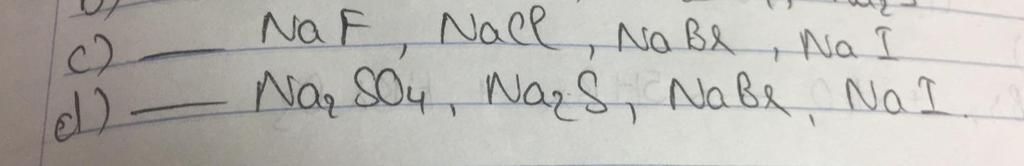 c) — NaF, NaCl, NaBr, NaI
d) — Na₂SO₄, Na₂S, NaBr, NaI.